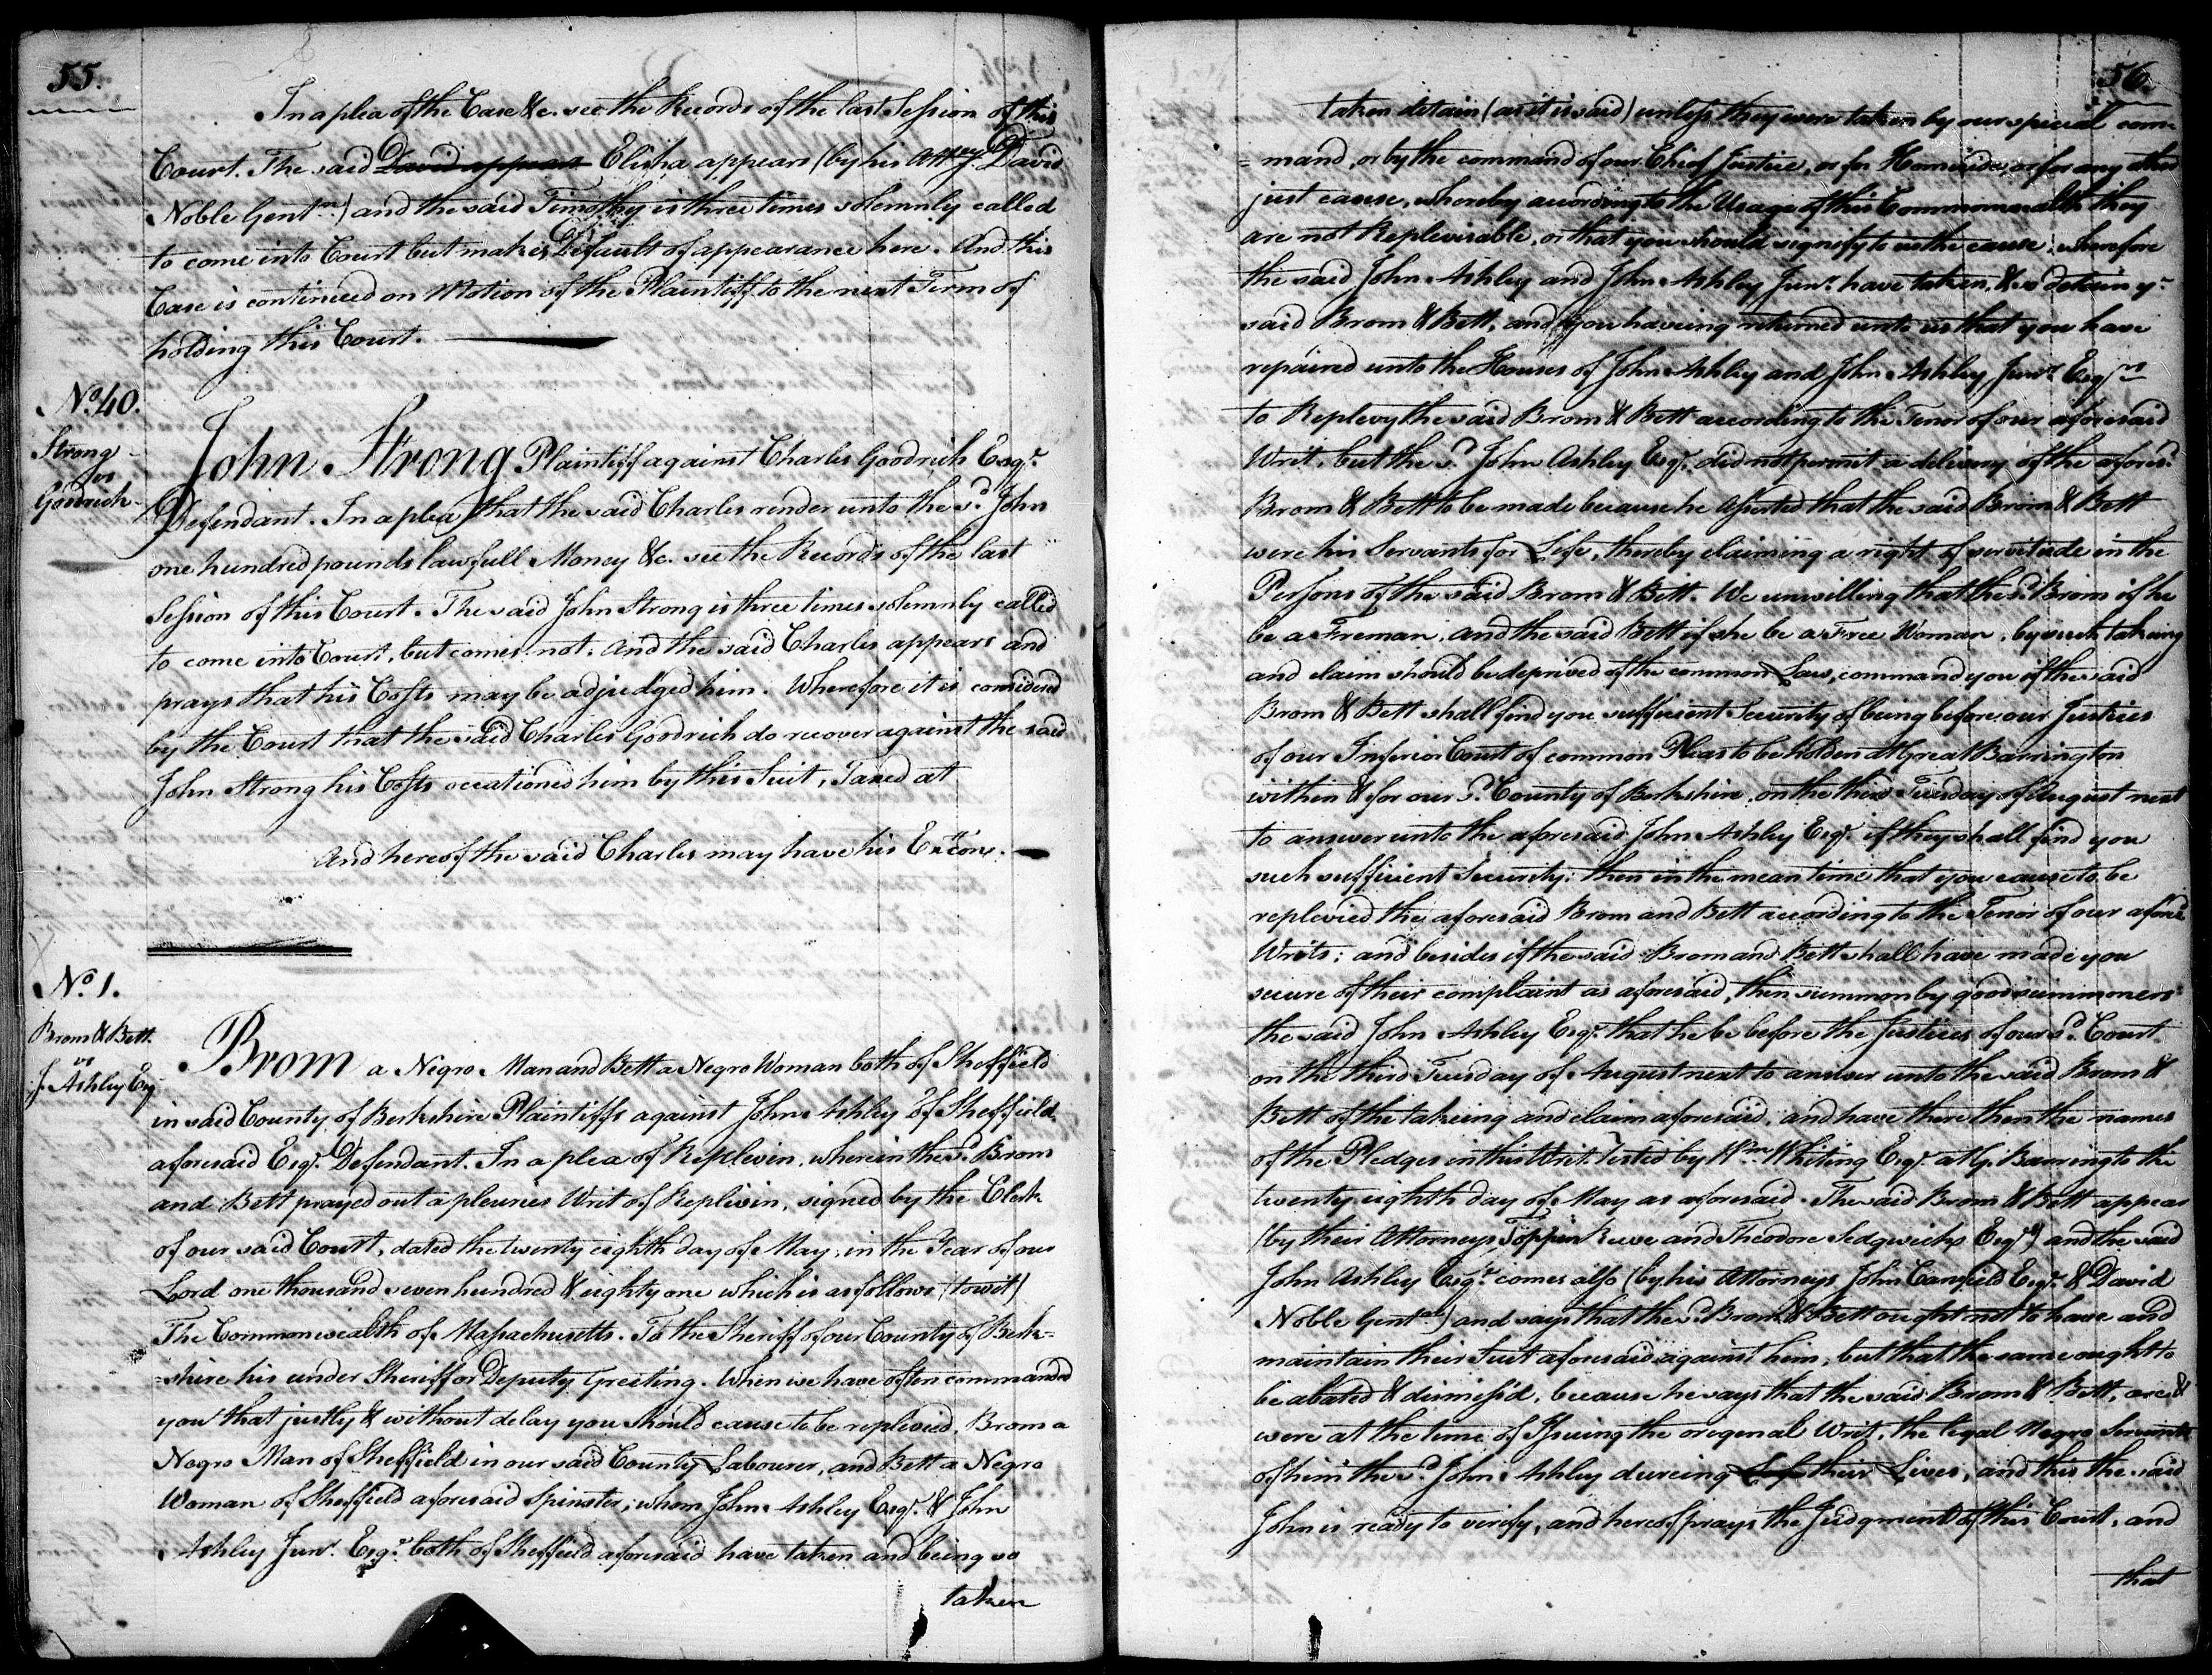 55.
In a plea of the Case &c. see the Records of the last Session of this
Court. The said David appears Elisha appears (by his Attey. David
Noble Gentn.) and the said Timothy is three times solemnly called
to come into Court but makes Default of appearance here. And this
Case is continued on Motion of the Plaintiff to the next Term of
holding this Court.
No. 40.
Strong
vs
Goodrich
John Strong Plaintiff against Charles Goodrich Esqr.
Defendant. In a plea that the said Charles render unto the sd. John
one hundred pounds lawfull Money &c. see the Records of the last
Session of this Court. The said John Strong is three times solemnly called
to come into Court, but comes not. And the said Charles appears and
prays that his Costs may be adjudged him. Wherefore it is considered
by the Court that the said Charles Goodrich do recover against the said
John Strong his Costs occationed him by this Suit, Taxed at
And hereof the said Charles may have his Exctōn.
No. 1.
Brom & Bett.
vs
J. Ashley Esq
Brom a Negro Man and Bett a Negro Woman both of Sheffield
in said County of Berkshire Plaintiffs against John Ashley of Sheffield
aforesaid Esqr. Defendant. In a plea of Replevin, wherein the sd. Brom
and Bett prayed out a pleuries Writ of Replivin, signed by the Clerk
of our said Court, dated the twenty eighth day of May, in the Year of our
Lord one thousand seven hundred & eighty one which is as follows (to wit)
The Commonwealth of Massachusetts. To the Sheriff of our County of Berk=
=shire his under Sheriff or Deputy Greeting. When we have often commanded
you that justly & without delay you should cause to be replevied, Brom a
Negro Man of Sheffield in our said County Labourer, and Bett a Negro
Woman of Sheffield aforesaid Spinster; whom John Ashley Esqr. & John
Ashley Junr. Esqr. both of Sheffield aforesaid have taken and being so
taken
56.
taken detain (as it is said) unless they were taken by our special com=
=mand, or by the command of our Chief Justice, or for Homicide, or for any other
just cause, whereby according to the Usage of this Commonwealth they
are not Replevisable, or that you should signify to us the cause, wherefore
the said John Ashley and John Ashley Junr. have taken, & so detain ye.
said Brom & Bett, and you haveing returned unto us that you have
repaired unto the Houses of John Ashley and John Ashley Junr. Esqrs
to Replevy the said Brom & Bett according to the Tenor of our aforesaid
Writ, but the sd. John Ashley Esqr. did not permit a delivery of the aforesd.
Brom & Bett to be made because he Asserted that the said Brom & Bett
were his Servants for Life, thereby claiming a right of servitude in the
Persons of the said Brom & Bett. We unwilling that the sd. Brom if he
be a Freman, and the said Bett if she be a Free Woman, by such takeing
and claim should be deprived of the common Law, command you if the said
Brom & Bett shall find you sufficient Security of being before our Justices
of our Inferior Court of common Pleas to be holden at Great Barrington
within & for our sd. County of Berkshire, on the third Tuesday of August next
to answer unto the aforesaid John Ashley Esqr. if they shall find you
such sufficient Security; then in the mean time that you cause to be
replevied the aforesaid Brom and Bett according to the Tenor of our aforesd
Writs; and besides if the said Brom and Bett shall have made you
secure of their complaint as aforesaid, then summon by good summoners
the said John Ashley Esqr. that he be before the Justices of our sd. Court
on the third Tuesday of August next to answer unto the said Brom &
Bett of the takeing and claim aforesaid, and have there then the names
of the Pledges in this Writ. Tested by Wm. Whiting Esqr. at G. Barrington the
twenty eighth day of May as aforesaid. The said Brom & Bett appear
(by their Attorneys Toppin Reeve and Theodore Sedgwick Esqrs) and the said
John Ashley Esqr. comes also (by his Attorneys John Canfield Esqr. & David
Noble Gentn.) and says that the sd. Brom & Bett ought not to have and
maintain their Suit aforesaid against him, but that the same ought to
be abated & dismiss'd, because he says that the said Brom & Bett, are &
were at the time of Issuing the original Writ, the legal Negro Servants
of him the sd. John Ashley dureing Life their Lives, and this the said
John is ready to verify, and hereof prays the Judgment of this Court, and
that